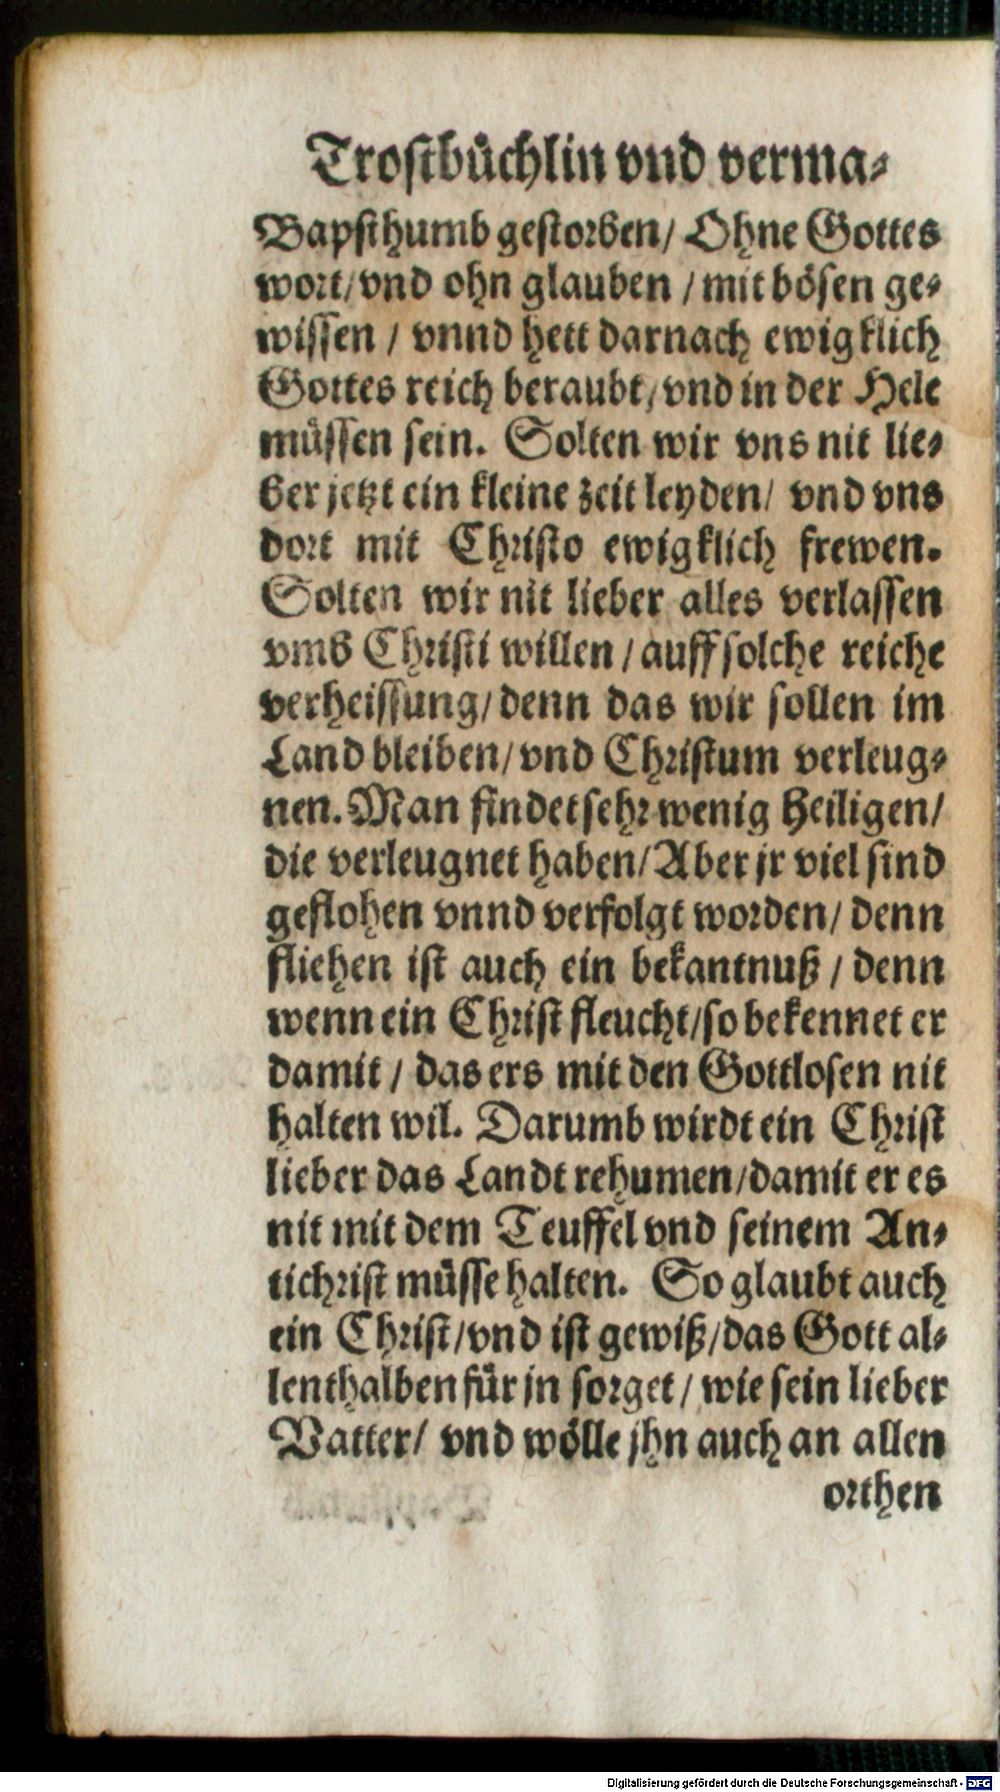 Trostbüchlin vnd verma⸗
Bapsthumb gestorben/ Ohne Gottes
wort/ vnd ohn glauben / mit bösen ge⸗
wissen / vnnd hett darnach ewigklich
Gottes reich beraubt/ vnd in der Hele
müssen sein. Solten wir vns nit lie⸗
ber jetzt ein kleine zeit leyden/ vnd vns
dort mit Christo ewigklich frewen.
Solten wir nit lieber alles verlassen
vmb Christi willen / auff solche reiche
verheissung/ denn das wir sollen im
Land bleiben/ vnd Christum verleug⸗
nen. Man findet sehr wenig Heiligen/
die verleugnet haben/ Aber jr viel sind
geflohen vnnd verfolgt worden/ denn
fliehen ist auch ein bekantnuß / denn
wenn ein Christ fleucht/ so bekennet er
damit / das ers mit den Gottlosen nit
halten wil. Darumb wirdt ein Christ
lieber das Landt rehumen/ damit er es
nit mit dem Teuffel vnd seinem An⸗
tichrist müsse halten. So glaubt auch
ein Christ/ vnd ist gewiß/ das Gott al⸗
lenthalben für jn sorget / wie sein lieber
Vatter/ vnd wölle jhn auch an allen
orthen
Digitalisierung gefördert durch die Deutsche Forschungsgemeinschaft - DFG